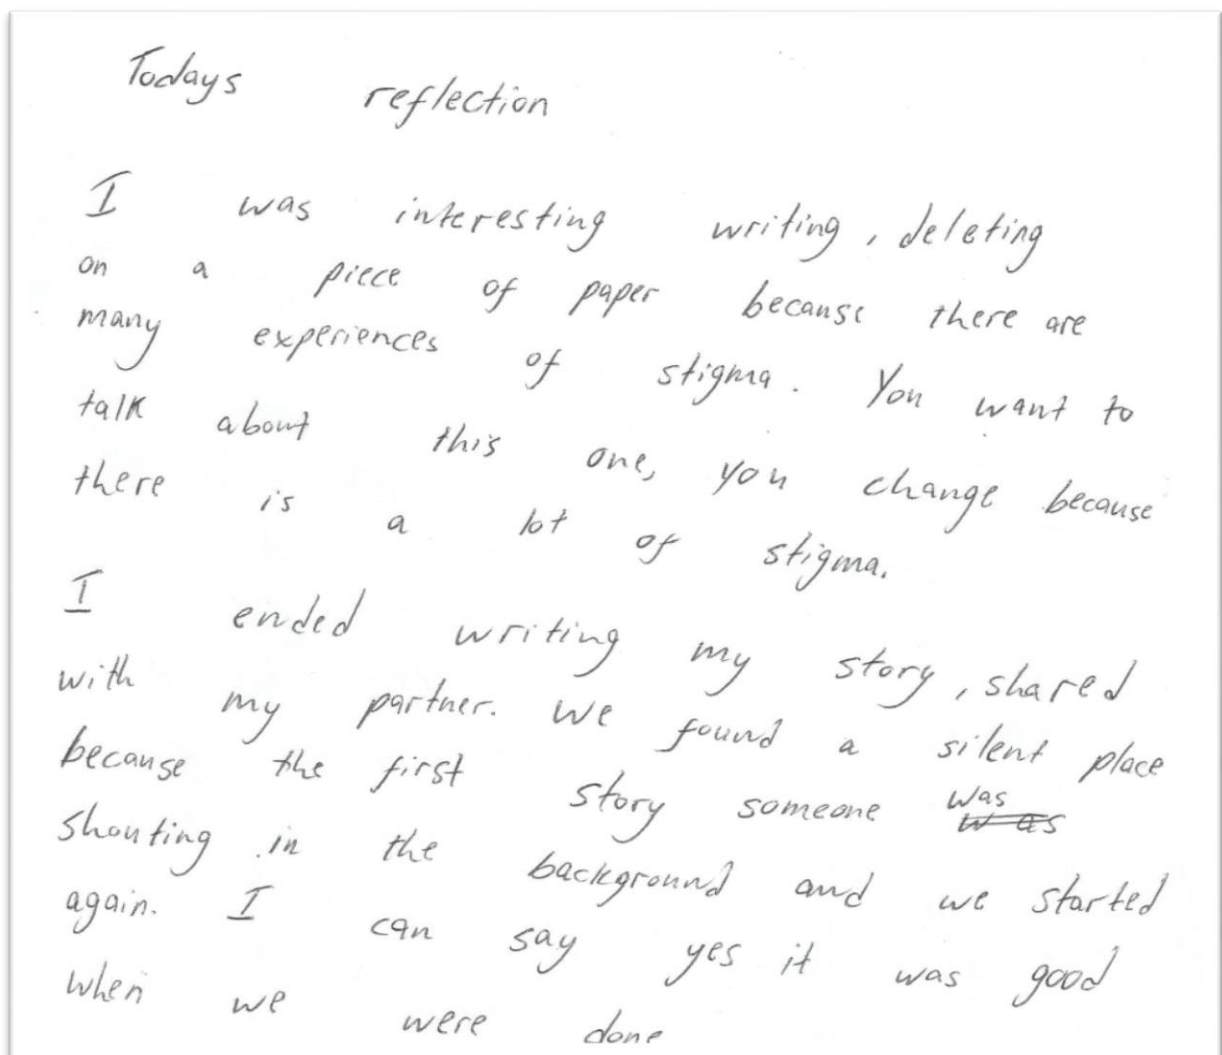 Todays reflection
I was interesting writing, deleting
on a piece of paper because there are
many experiences of stigma. You want to
talk about this one, you change because
there is a lot of stigma.
I ended writing my story, shared
with my partner. We found a silent place
because the first story someone was was
shouting in the background and we started
again. I can say yes it was good
when we were done